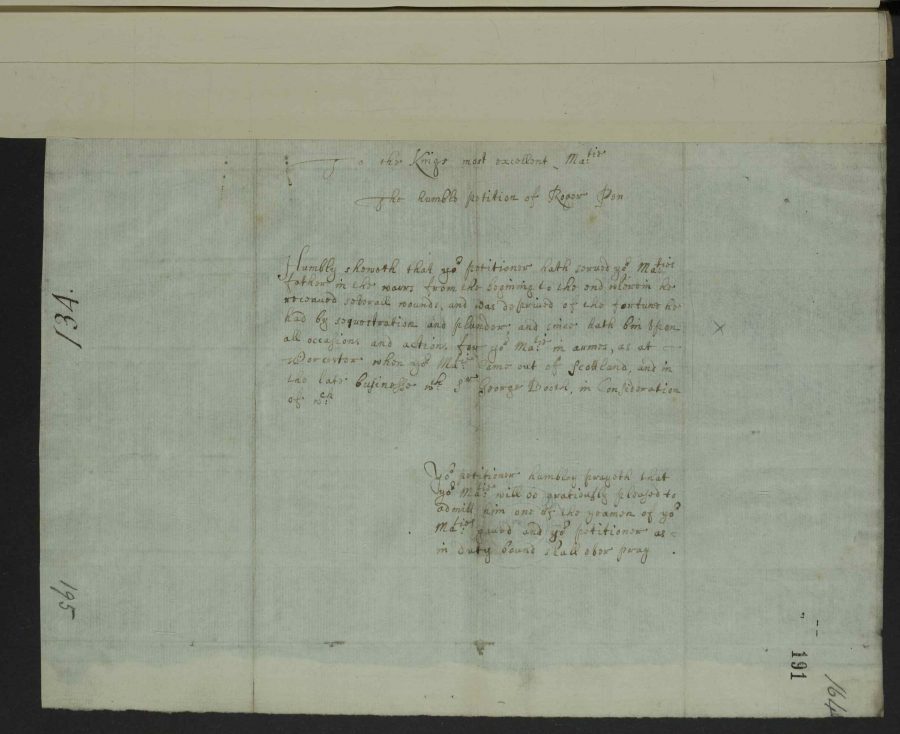 To the Kings most excellent Ma:tie
The humble petition of Roger Pen
Humbly sheweth that yor petitioner hath served yor Ma:ties
father in the warrs from the begining to the end wherein he
receaued severall wounds, and was deprived of the fortune he
had by sequestration and plunder and since hath bin upon
all occasions and actions for yor Ma:tie in armes, as at
Worcester when yor Ma:tie came out of Scottland, and in
the late businesse wth Sr George Booth, in Consideration
of wch
Yor petitioner humbley prayeth that
yor Ma:tie will be gratiously pleased to
admitt him one of the yeamen of yor
Ma:ties guard and yor petitioner as
in duty bound shall ever pray
134.
195
191
164